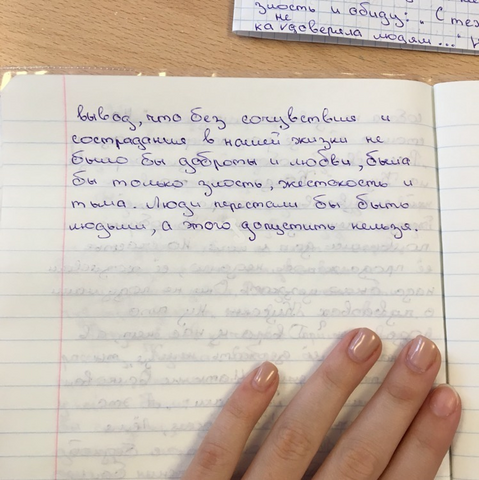 злость и обиду. С тех
не
ка доверяла людям..."
вывод, что без сочувствия и
сострадания в нашей жизни не
было бы доброты и любви, была
бы только злость, жестокость и
тьма. Люди перестали бы быть
людьми, а этого допустить нельзя.